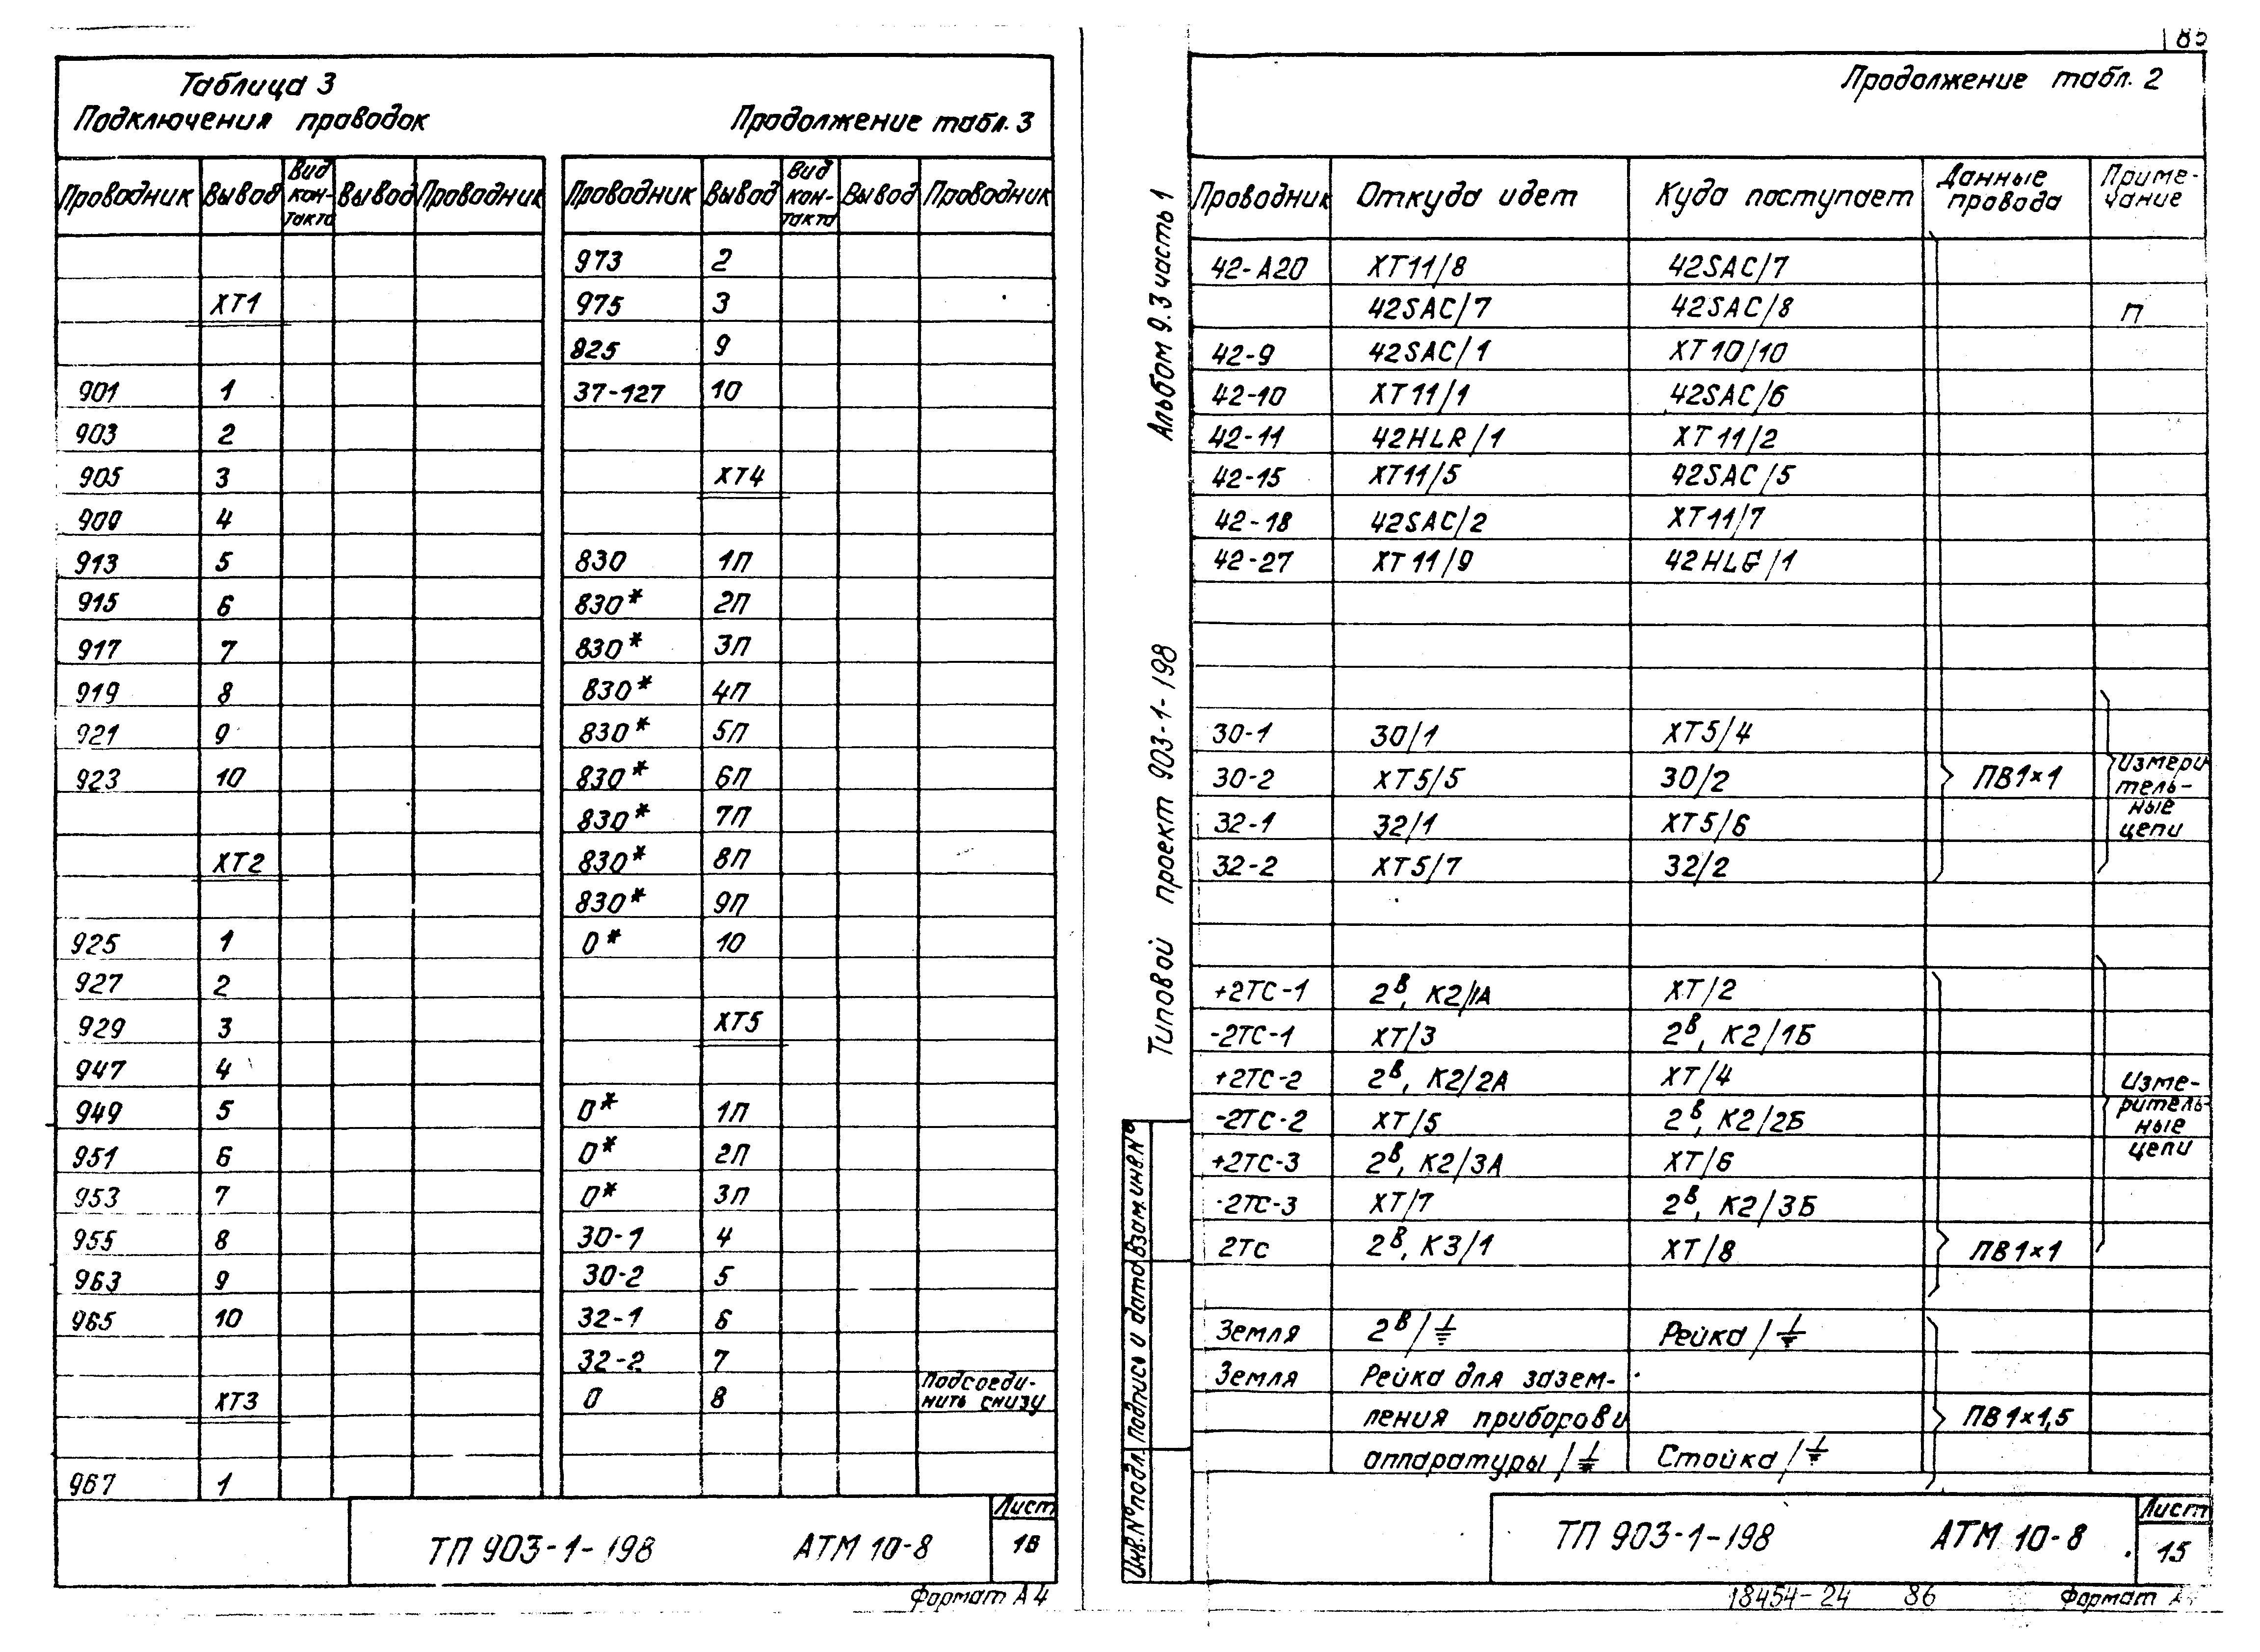 Таблица 3
Подключения проводок
Продолжение табл. 3
Проводник Вывод Вид контакта Вывод Проводник
ХТ1
901 1
903 2
905 3
909 4
913 5
915 6
917 7
919 8
921 9
923 10
ХТ2
925 1
927 2
929 3
947 4
949 5
951 6
953 7
955 8
963 9
965 10
ХТ3
967 1
Проводник Вывод Вид кон-такта Вывод Проводник
973 2
975 3
825 9
37-127 10
ХТ4
830 1П
830* 2П
830* 3П
830* 4П
830* 5П
830* 6П
830* 7П
830* 8П
830* 9П
0* 10
ХТ5
0* 1П
0* 2П
0* 3П
30-1 4
30-2 5
32-1 6
32-2 7
0 8 Подсоеди-нить снизу
ТП 903-1-198 АТМ 10-8
Лист
16
Формат А4
85
Продолжение табл. 2
Альбом 9.3 часть 1
Типовой проект 903-1-198
Проводник Откуда идет Куда поступает Данные провода Приме-чание
42-А20 ХТ11/8 42SAC/7
42SAC/7 42SAC/8 П
42-9 42SAC/1 ХТ10/10
42-10 ХТ11/1 42SAC/6
42-11 42HLR/1 ХТ11/2
42-15 ХТ11/5 42SAC/5
42-18 42SAC/2 ХТ11/7
42-27 ХТ11/9 42HLG/1
30-1 30/1 ХТ5/4
30-2 ХТ5/5 30/2 ПВ1×1
32-1 32/1 ХТ5/6
32-2 ХТ5/7 32/2
Измери
тель-
ные
цепи
+2ТС-1 2В, К2/1А ХТ/2
-2ТС-1 ХТ/3 2В, К2/1Б
+2ТС-2 2В, К2/2А ХТ/4
-2ТС-2 ХТ/5 2В, К2/2Б
+2ТС-3 2В, К2/3А ХТ/6
-2ТС-3 ХТ/7 2В, К2/3Б
2ТС 2В, К3/1 ХТ/8 ПВ1×1
Изме-
ритель-
ные
цепи
Земля 2В/⏚ Рейка/⏚
Земля Рейка для зазем-
ления приборов и ПВ1×1,5
аппаратуры/⏚ Стойка/⏚
Инв.№подл. Подпись и дата Взам.инв.№
ТП 903-1-198 АТМ 10-8
Лист
15
18454-24 86
Формат А4